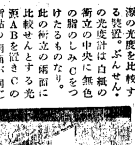 源の光度を比較す
る裝置。ぶんせん・
の光度計は白紙の
衝立の中央に無色
の脂のしみCをつ
けたるものなり。
此の衝立の兩面に
比較せんとする光
源ABを置きCの